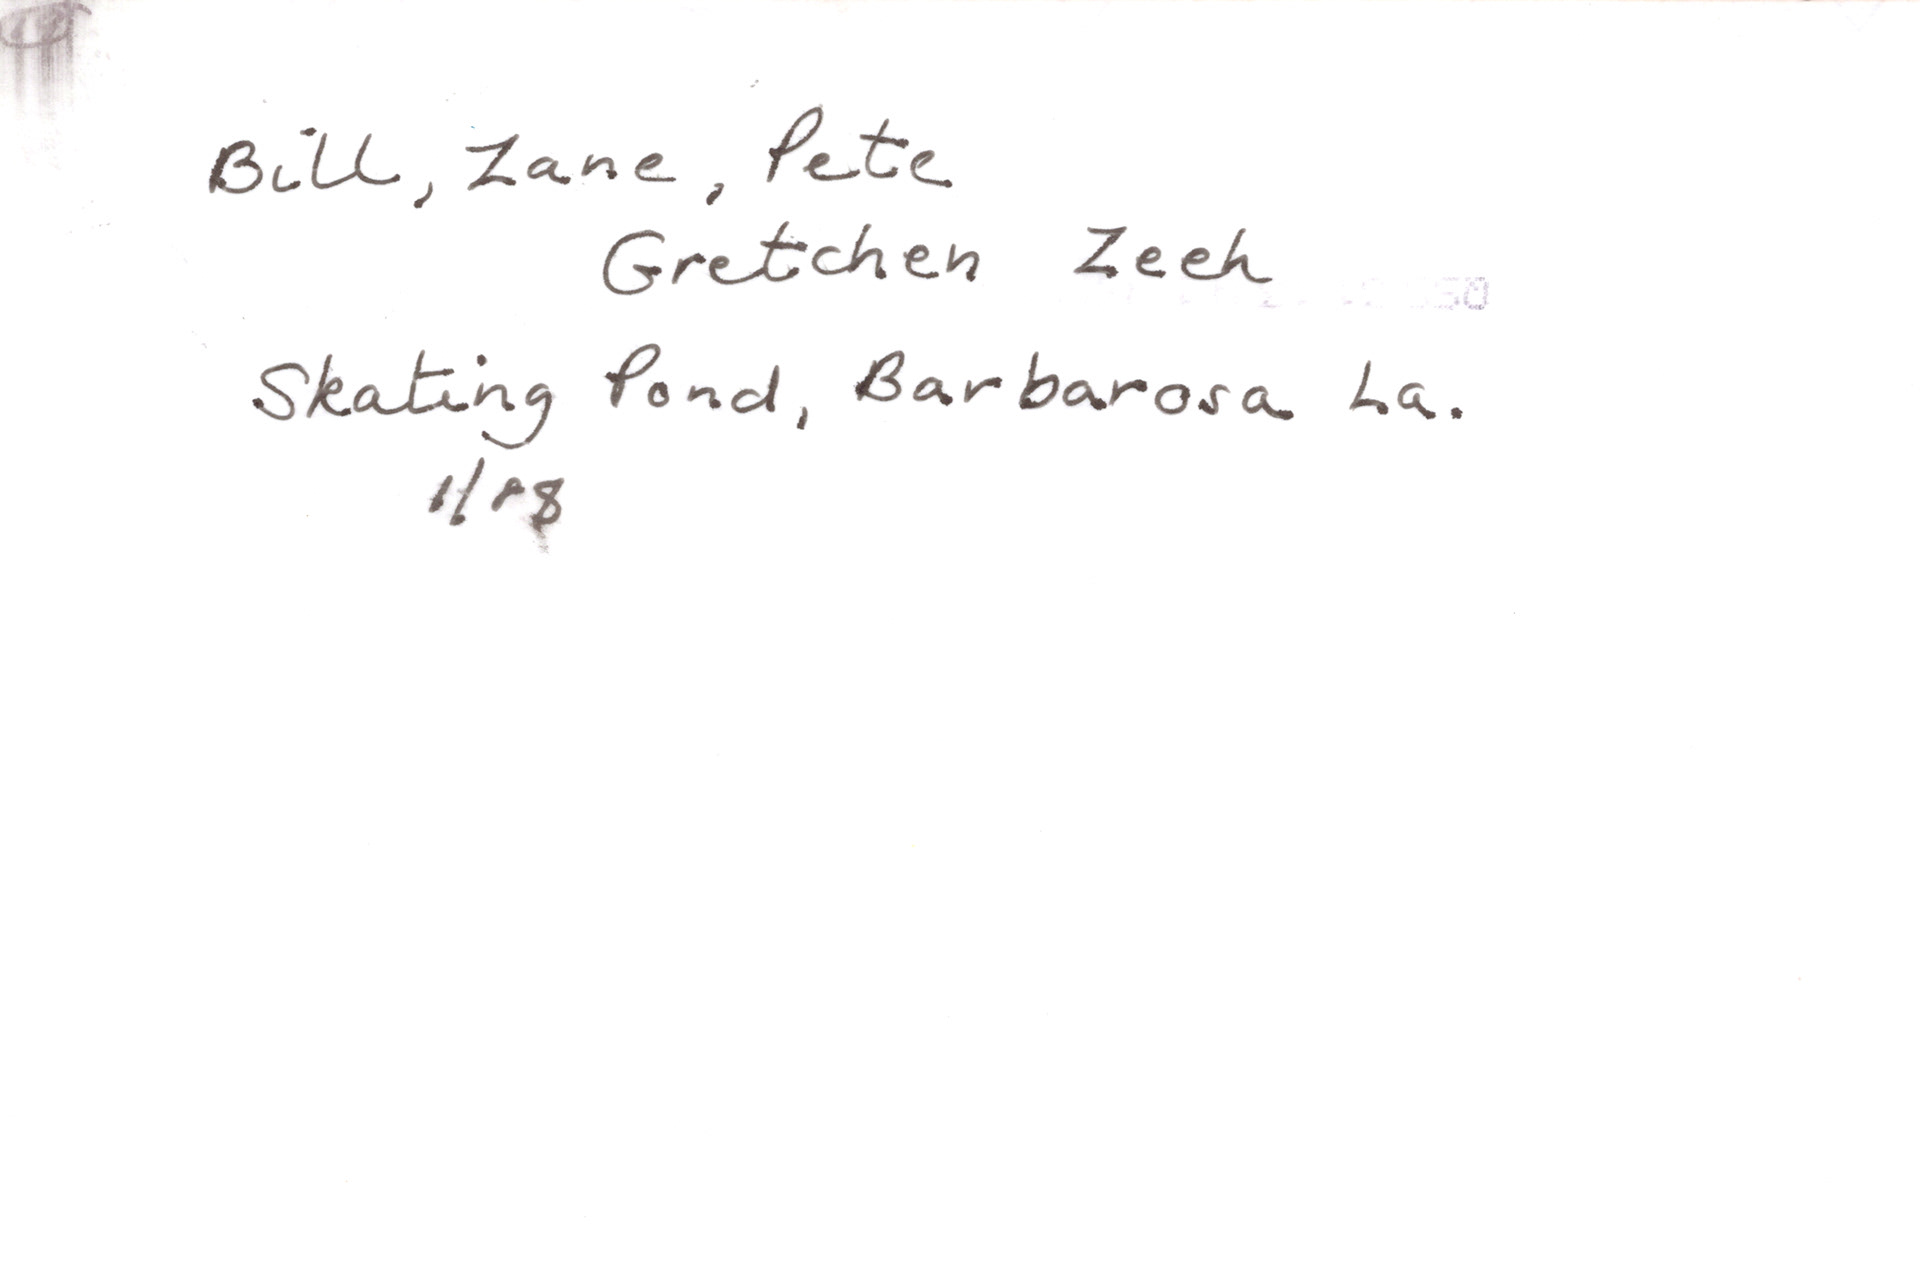 Bill, Zane, Pete
Gretchen Zeeh
Skating Pond, Barbarosa La.